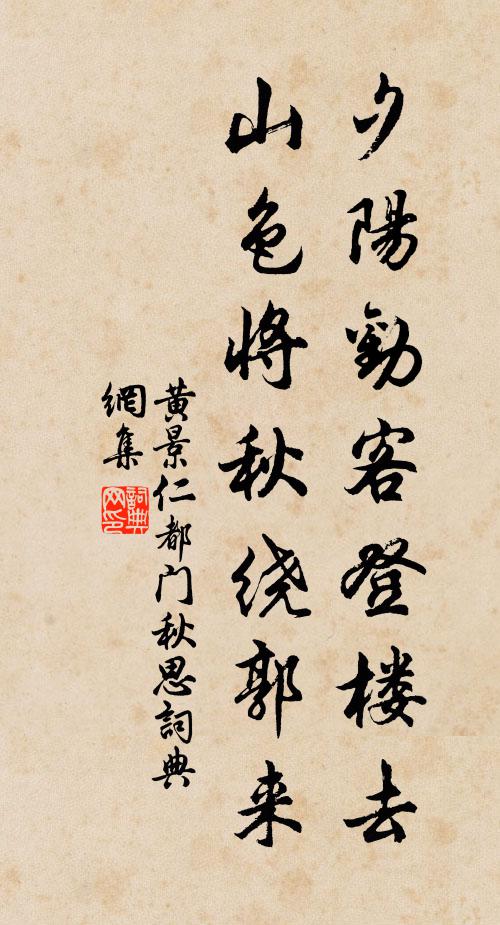 夕陽勸客登楼去
山色將秋绕郭来
黄景仁都门秋思詞典
網集
詞典网印